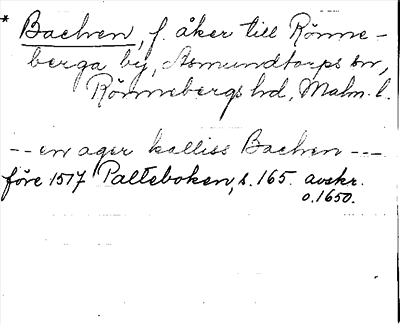 * Bachen, f. åker till Rönne-
berga by, Asmundtorps sn,
Rönnebergs hd, Malm. l.
-- en ager kalliss Bachen ---
före 1517 Palteboken, s. 165. avskr.
o. 1650.